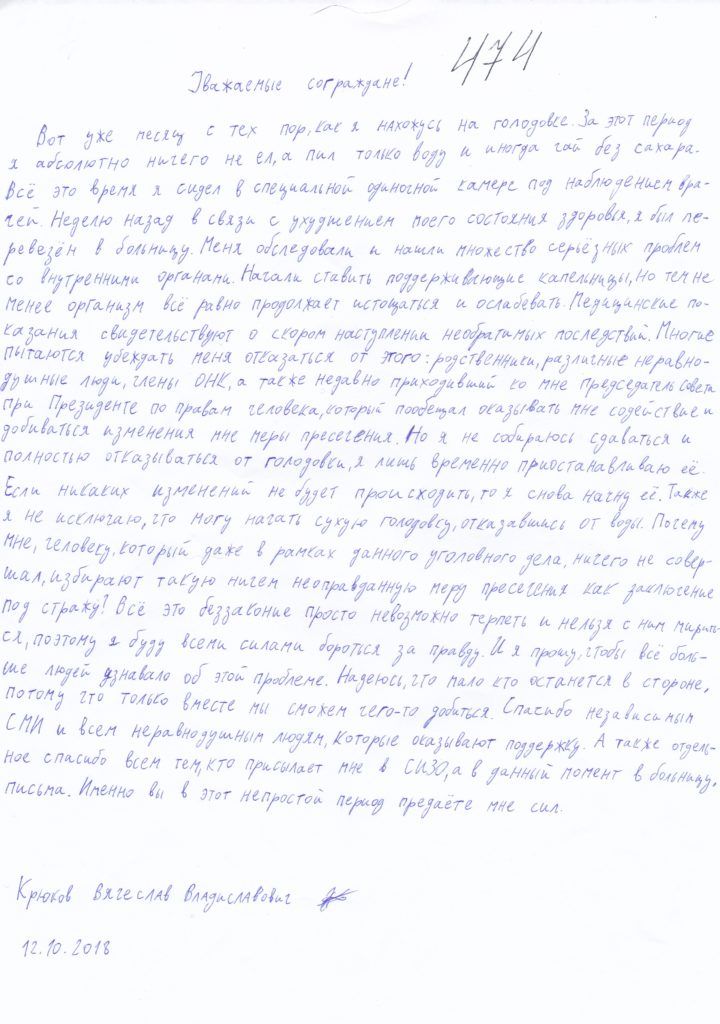 474
Уважаемые сограждане!
Вот уже месяц с тех пор, как я нахожусь на голодовке. За этот период
я абсолютно ничего не ел, а пил только воду и иногда чай без сахара.
Всё это время я сидел в специальной одиночной камере под наблюдением вра-
чей. Неделю назад в связи с ухудшением моего состояния здоровья, я был пе-
ревезён в больницу. Меня обследовали и нашли множество серьёзных проблем
со внутренними органами. Начали ставить поддерживающие капельницы, но тем не
менее организм всё равно продолжает истощаться и ослабевать. Медицинские по-
казания свидетельствуют о скором наступлении необратимых последствий. Многие
пытаются убеждать меня отказаться от этого: родственники, различные неравно-
душные люди, члены ОНК, а также недавно приходивший ко мне председатель Совета
при Президенте по правам человека, который пообещал оказывать мне содействие и
добиваться изменения мне меры пресечения. Но я не собираюсь сдаваться и
полностью отказываться от голодовки, я лишь временно приостанавливаю её.
Если никаких изменений не будет происходить, то я снова начну её. Также
я не исключаю, что могу начать сухую голодовку, отказавшись от воды. Почему
мне, человеку, который даже в рамках данного уголовного дела, ничего не совер-
шал, избирают такую ничем неоправданную меру пресечения как заключение
под стражу? Всё это беззаконие просто невозможно терпеть и нельзя с ним мирить-
ся, поэтому я буду всеми силами бороться за правду. И я прошу, чтобы всё боль-
ше людей узнавало об этой проблеме. Надеюсь, что мало кто останется в стороне,
потому что только вместе мы сможем чего-то добиться. Спасибо независимым
СМИ и всем неравнодушным людям, которые оказывают поддержку. А также отдель-
ное спасибо всем тем, кто присылает мне в СИЗО, а в данный момент в больницу,
письма. Именно вы в этот непростой период предаёте мне сил.
Крюков Вячеслав Владиславович
12.10.2018